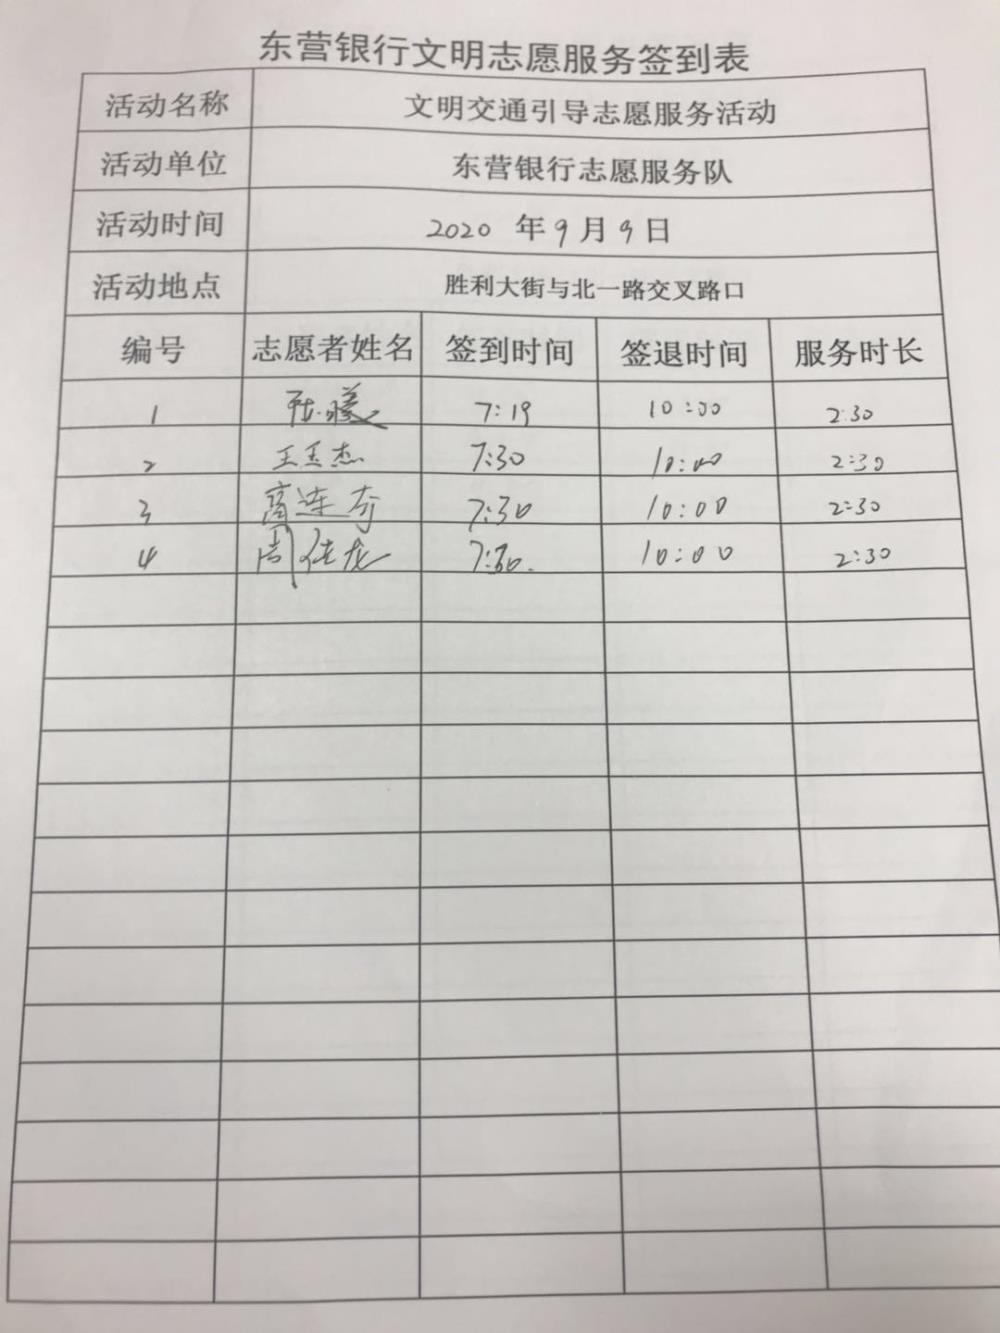 东营银行文明志愿服务签到表
活动名称 文明交通引导志愿服务活动
活动单位 东营银行志愿服务队
活动时间 2020 年 9 月 9 日
活动地点 胜利大街与北一路交叉路口
编号 志愿者姓名 签到时间 签退时间 服务时长
1 7:19 10:00 2:30
2 王孟杰 7:30 10:00 2:30
3 高连奇 7:30 10:00 2:30
4 周佳龙 7:30. 10:00 2:30